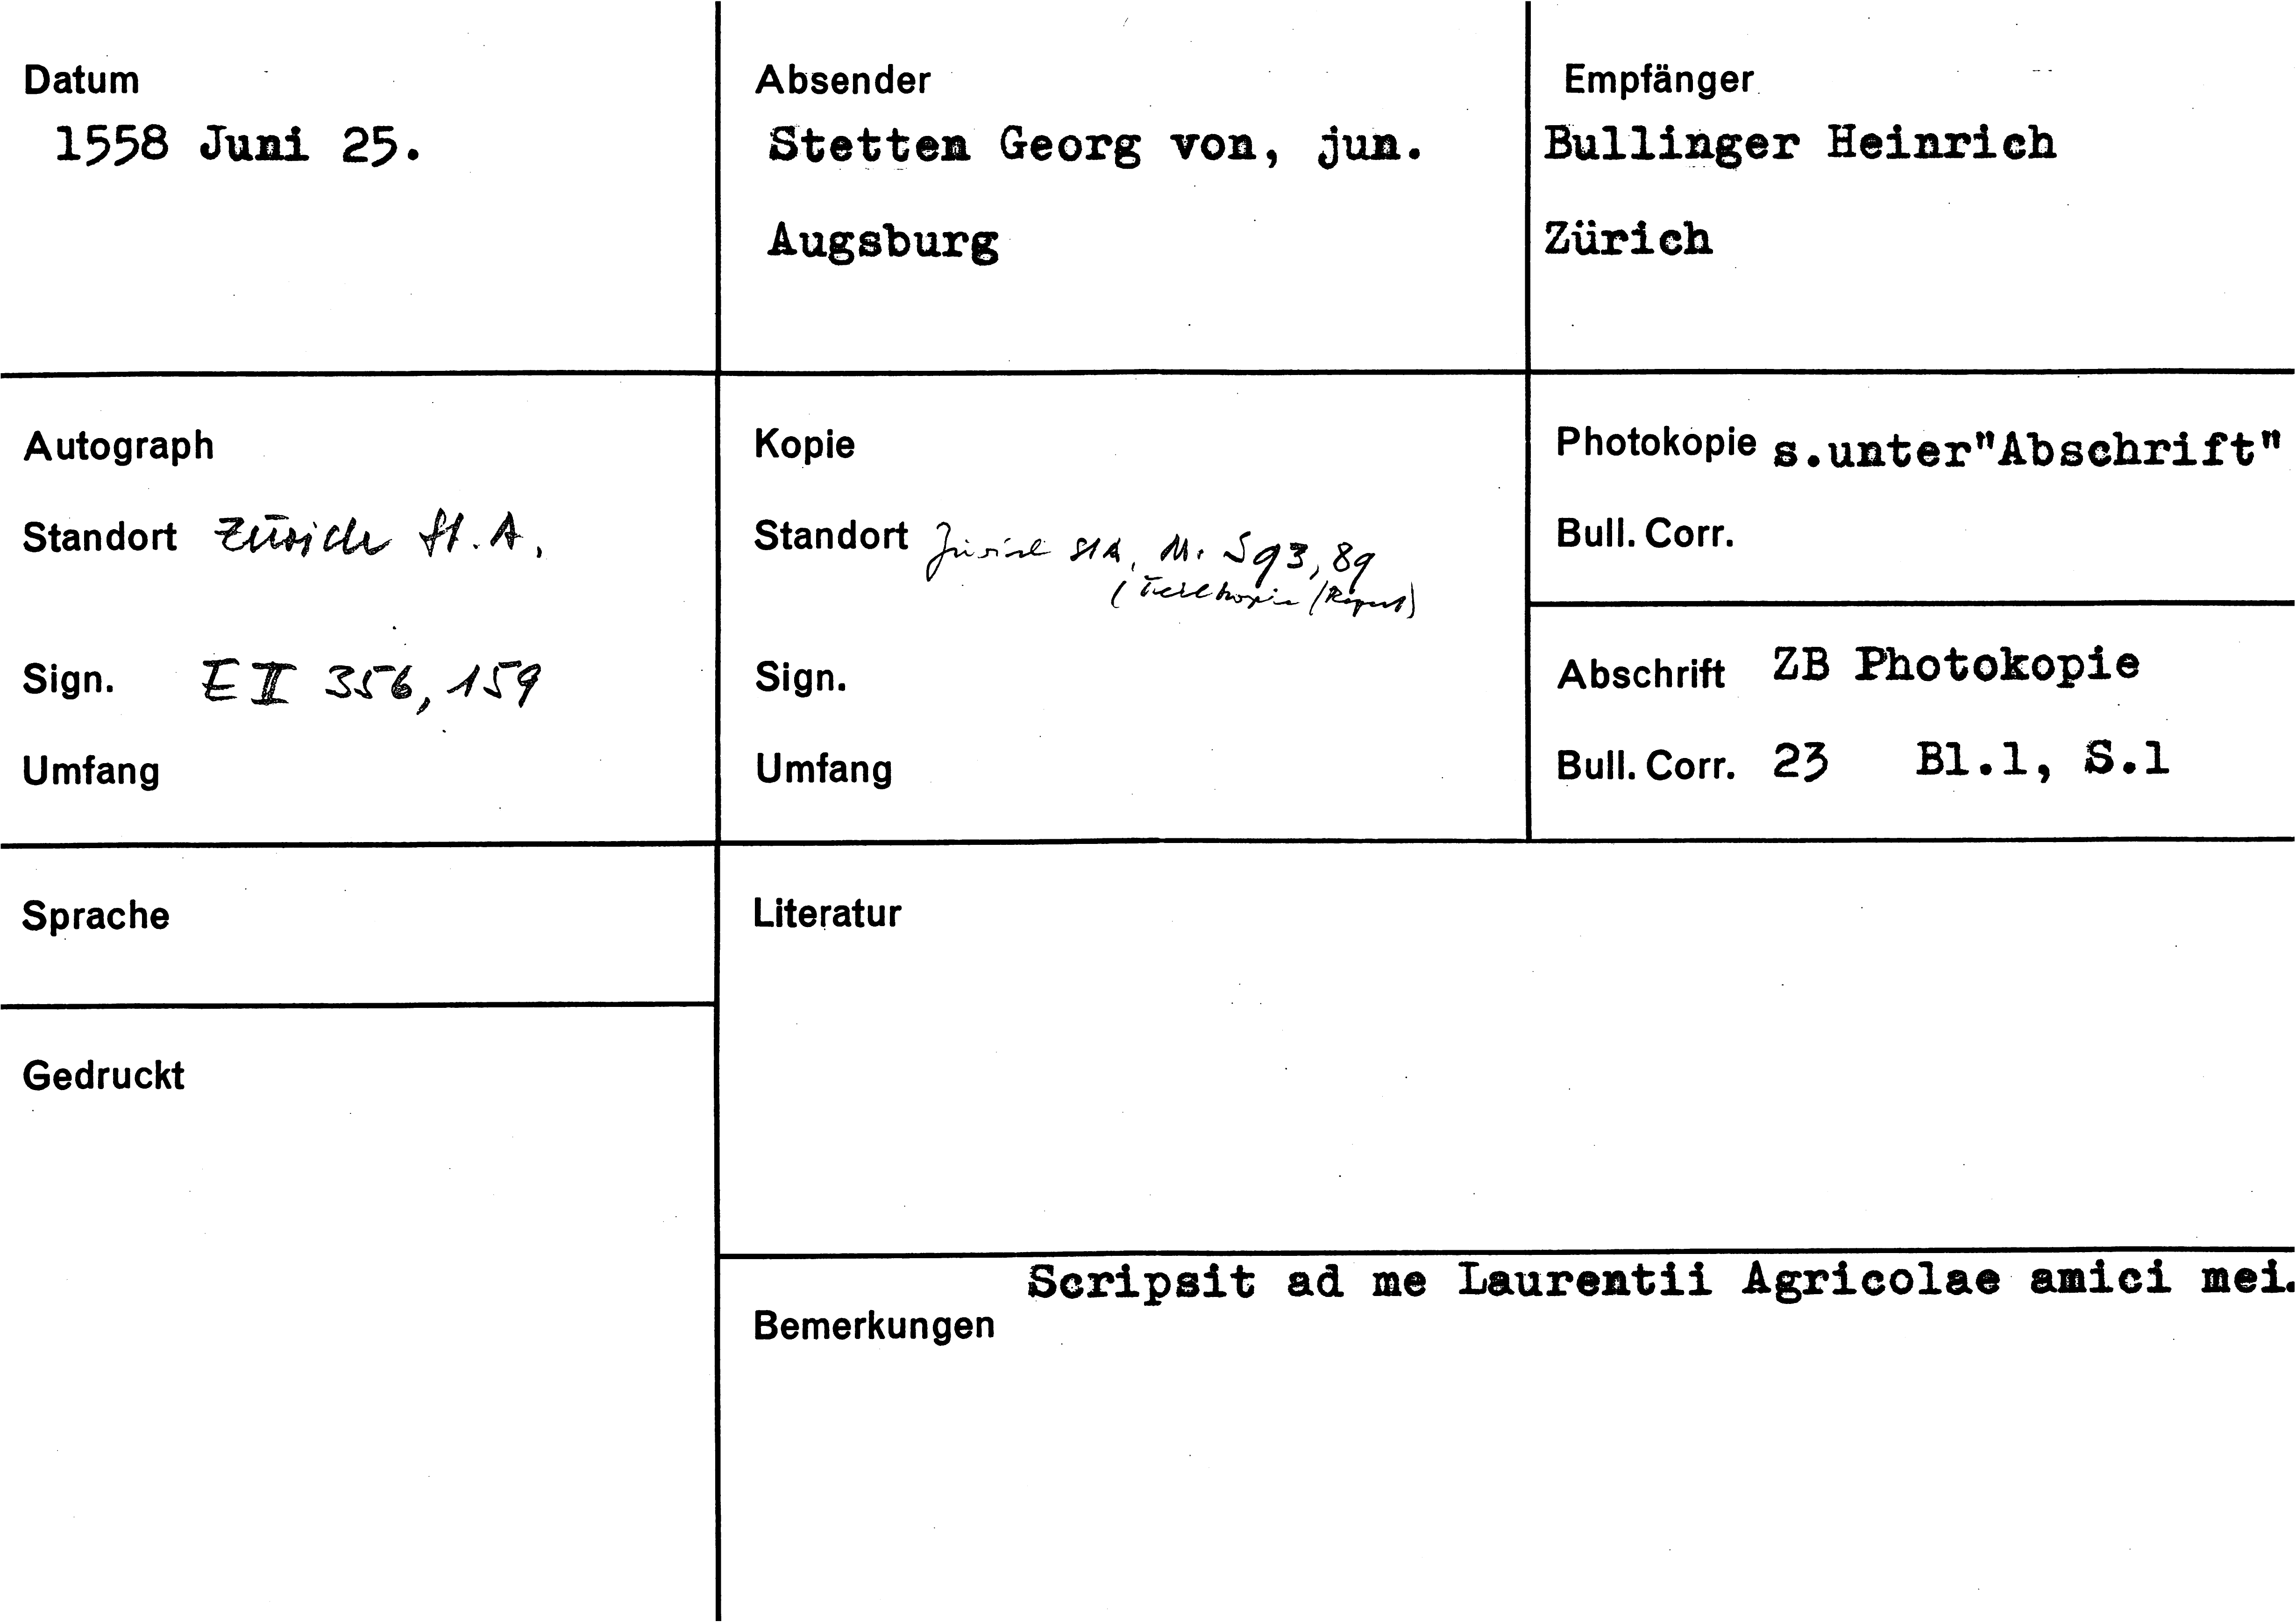 Datum
1558 Juni 25.
Absender
Stetten Georg von, jun.
Augsburg
Empfänger
Bullinger Heinrich
Zürich
Autograph
Standort Zürich St. A.
Sign. E II 356, 159
Umfang
Kopie
Standort Zürich StA, M. S 93, 89
(Teilkopie /
Sign.
Umfang
Photokopie s.unter"Abschrift"
Bull. Corr.
Abschrift ZB Photokopie
Bull. Corr. 23 Bl.1, S.1
Sprache
Gedruckt
Literatur
Scripsit ad me Laurentii Agricolae amici mei.
Bemerkungen